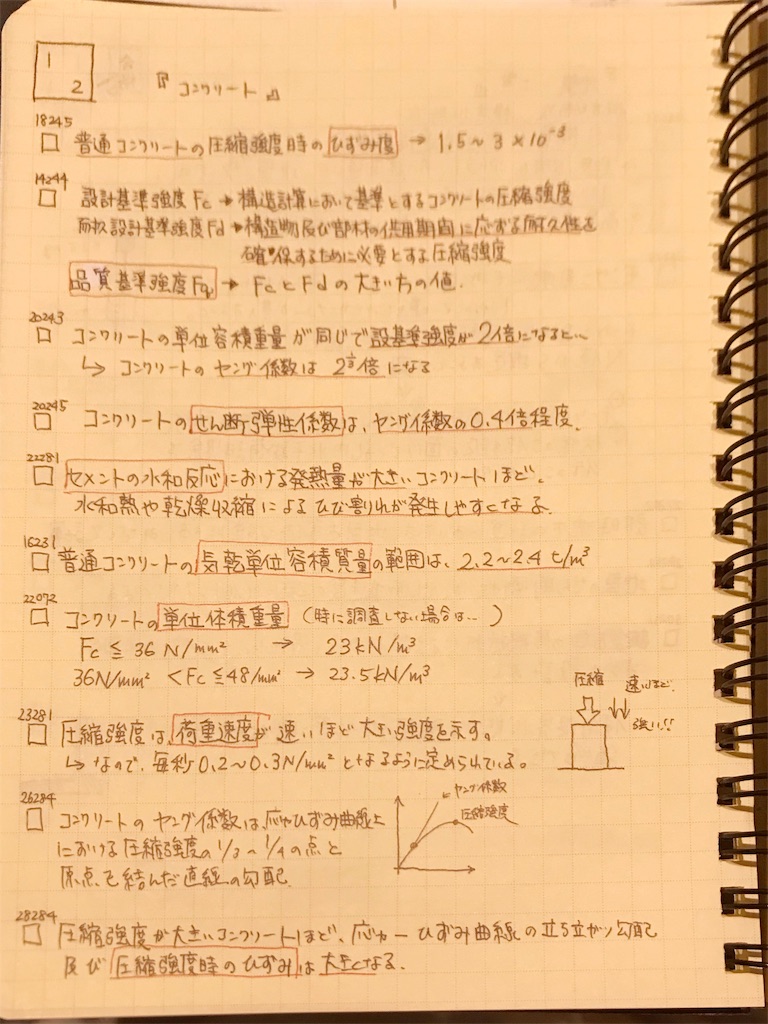 1
2
『コンクリート』
18245
普通コンクリートの圧縮強度時のひずみ度 → 1.5～3×10⁻³
14244
設計基準強度 Fc → 構造計算において基準とするコンクリートの圧縮強度
耐久設計基準強度 Fd → 構造物及び部材の供用期間に応ずる耐久性を
確保するために必要とする圧縮強度
品質基準強度 Fq → FcとFdの大きい方の値.
20243
コンクリートの単位容積重量が同じで設基準強度が2倍になると…
↳ コンクリートのヤング係数は 2^(1/3)倍になる
20245
コンクリートのせん断弾性係数は、ヤング係数の0.4倍程度.
22281
セメントの水和反応における発熱量が大きいコンクリートほど、
水和熱や乾燥収縮によるひび割れが発生しやすくなる.
16231
普通コンクリートの気乾単位容積質量の範囲は、2.2～2.4 t/m³
22072
コンクリートの単位体積重量 (時に調査しない場合は…)
Fc ≦ 36 N/mm² → 23kN/m³
36N/mm² < Fc ≦ 48/mm² → 23.5kN/m³
圧縮 速いほど.
強い!!
23281
圧縮強度は、荷重速度が速いほど大きい強度を示す。
↳ なので、毎秒0.2～0.3N/mm²となるように定められている。
26284
コンクリートのヤング係数は、応力ひずみ曲線上
における圧縮強度の1/3～1/4の点と
原点を結んだ直線の勾配.
ヤング係数
圧縮強度
28284
圧縮強度が大きいコンクリートほど、応力ーひずみ曲線の立ち立がり勾配
及び圧縮強度時のひずみは大きくなる.